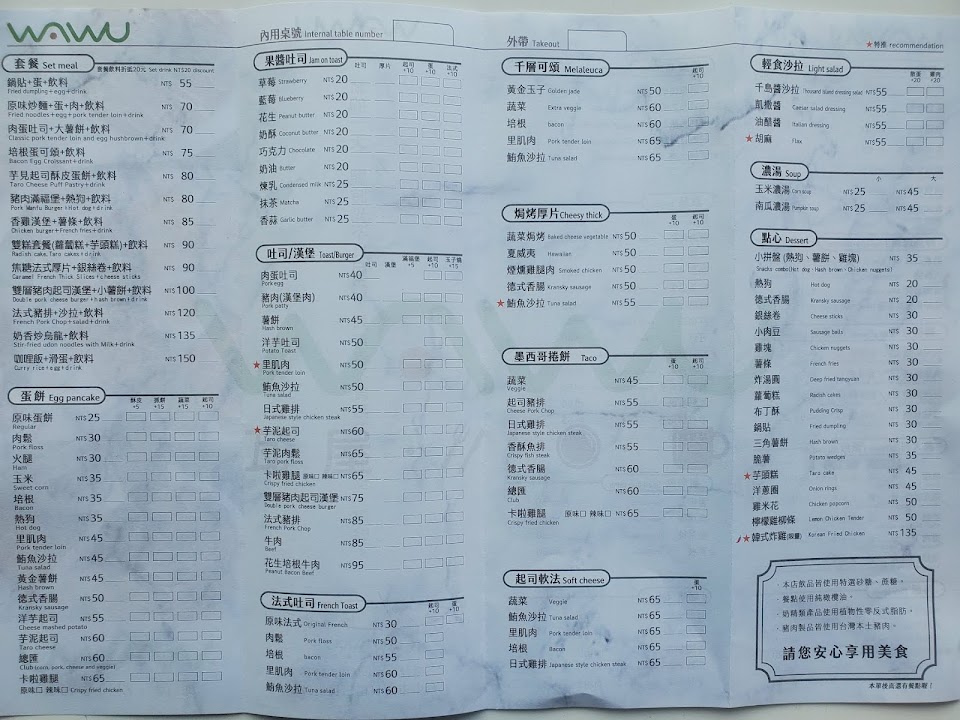 WAWU
套餐 Set meal 套餐飲料折抵20元 Set drink NT$20 discount
鍋貼+蛋+飲料 NT$ 55
Fried dumpling+egg+drink
原味炒麵+蛋+肉+飲料 NT$ 70
Fried noodles+egg+pork tender loin+drink
肉蛋吐司+大薯餅+飲料 NT$ 70
Classic pork tender loin and egg hushbrown+drink
培根蛋可頌+飲料 NT$ 75
Bacon Egg Croissant+drink
芋見起司酥皮蛋餅+飲料 NT$ 80
Taro Cheese Puff Pastry+drink
豬肉滿福堡+熱狗+飲料 NT$ 80
Pork Wanfu Burger+Hot dog+drink
香雞漢堡+薯條+飲料 NT$ 85
Chicken burger+French fries+drink
雙糕套餐(蘿蔔糕+芋頭糕)+飲料 NT$ 90
Radish cake,Taro cakes+drink
焦糖法式厚片+銀絲卷+飲料 NT$ 90
Caramel French Thick Slices+cheese sticks
雙層豬肉起司漢堡+小薯餅+飲料 NT$100
Double pork cheese burger+hash brown+drink
法式豬排+沙拉+飲料 NT$ 120
French Pork Chop+salad+drink
奶香炒烏龍+飲料 NT$ 135
Stir-fried udon noodles with Milk+drink
咖哩飯+滑蛋+飲料 NT$ 150
Curry rice+egg+drink
蛋餅 Egg pancake 酥皮+5 蔬餅+15 蔬菜+15 起司+10
原味蛋餅 NT$ 25
Regular
肉鬆 NT$ 30
Pork floss
火腿 NT$ 30
Ham
玉米 NT$ 35
Sweet corn
培根 NT$ 35
Bacon
熱狗 NT$ 35
Hot dog
里肌肉 NT$ 45
Pork tender loin
鮪魚沙拉 NT$ 45
Tuna salad
黃金薯餅 NT$ 45
Hash brown
德式香腸 NT$ 50
Kransky sausage
洋芋起司 NT$ 55
Cheese mashed potato
芋泥起司 NT$ 60
Taro cheese
總匯 NT$ 60
Club
卡啦雞腿 NT$ 65
原味□ 辣味□ Crispy fried chicken
內用桌號 Internal table number
果醬吐司 Jam on toast 吐司 厚片+10 起司+10 蛋+10 法式+10
草莓 Strawberry NT$ 20
藍莓 Blueberry NT$ 20
花生 Peanut butter NT$ 20
奶酥 Coconut butter NT$ 20
巧克力 Chocolate NT$ 20
奶油 Butter NT$ 20
煉乳 Condensed milk NT$ 25
抹茶 Matcha NT$ 25
香蒜 Garlic butter NT$ 25
吐司/漢堡 Toast/Burger 吐司 漢堡 滿福堡+5 起司+10 玉子燒+15
肉蛋吐司 NT$ 40
Pork egg
豬肉(漢堡肉) NT$ 40
Pork patty
薯餅 NT$ 45
Hash brown
洋芋吐司 NT$ 50
Potato Toast
★里肌肉 NT$ 50
Pork tender loin
鮪魚沙拉 NT$ 50
Tuna salad
日式雞排 NT$ 55
Japanese style chicken steak
★芋泥起司 NT$ 60
Taro cheese
芋泥肉鬆 NT$ 65
Taro pork floss
卡啦雞腿 原味□ 辣味□ NT$ 65
Crispy fried chicken
雙層豬肉起司漢堡 NT$ 75
Double pork cheese burger
法式豬排 NT$ 85
French Pork Chop
牛肉 NT$ 85
Beef
花生培根牛肉 NT$ 95
Peanut Bacon Beef
法式吐司 French Toast 起司+10 蛋+10
原味法式 Original French NT$ 30
肉鬆 Pork floss NT$ 50
培根 bacon NT$ 55
里肌肉 Pork tender loin NT$ 60
鮪魚沙拉 Tuna salad NT$ 60
外帶 Takeout
千層可頌 Melaleuca 起司+10
黃金玉子 Golden jade NT$ 50
蔬菜 Extra veggie NT$ 60
培根 bacon NT$ 60
里肌肉 Pork tender loin NT$ 65
鮪魚沙拉 Tuna salad NT$ 65
焗烤厚片 Cheesy thick 蛋+10 起司+10
蔬菜焗烤 Baked cheese vegetable NT$ 50
夏威夷 Hawaiian NT$ 50
煙燻雞腿肉 Smoked chicken NT$ 50
德式香腸 Kransky sausage NT$ 50
★鮪魚沙拉 Tuna salad NT$ 55
墨西哥捲餅 Taco 蛋+10 起司+10
蔬菜 NT$ 45
Veggie
起司豬排 NT$ 55
Cheese Pork Chop
日式雞排 NT$ 55
Japanese style chicken steak
香酥魚排 NT$ 55
Crispy fish steak
德式香腸 NT$ 60
Kransky sausage
總匯 NT$ 60
Club
卡啦雞腿 原味□ 辣味□ NT$ 65
Crispy fried chicken
起司軟法 Soft cheese 蛋+10
蔬菜 Veggie NT$ 65
鮪魚沙拉 Tuna salad NT$ 65
里肌肉 Pork tender loin NT$ 65
培根 Bacon NT$ 65
日式雞排 Japanese style chicken steak NT$ 65
★特推 recommendation
輕食沙拉 Light salad
千島醬沙拉 Thousand island dressing salad NT$ 55
凱撒醬 Caesar salad dressing NT$ 55
油醋醬 Italian dressing NT$ 55
★胡麻 Flax NT$ 55
濃湯 Soup 小 大
玉米濃湯 Corn soup NT$ 25 NT$ 45
南瓜濃湯 Pumpkin soup NT$ 25 NT$ 45
點心 Dessert
小拼盤 (熱狗、薯餅、雞塊) NT$ 35
Snacks combo(Hot dog、Hash brown、Chicken nuggets)
熱狗 Hot dog NT$ 20
德式香腸 Kransky sausage NT$ 20
銀絲卷 Cheese sticks NT$ 30
小肉豆 Sausage balls NT$ 30
雞塊 Chicken nuggets NT$ 30
薯條 French fries NT$ 30
炸湯圓 Deep fried tangyuan NT$ 30
蘿蔔糕 Radish cakes NT$ 30
布丁酥 Pudding Crisp NT$ 30
鍋貼 Fried dumpling NT$ 30
三角薯餅 Hash brown NT$ 30
脆薯 Potato wedges NT$ 35
★芋頭糕 Taro cake NT$ 45
洋蔥圈 Onion rings NT$ 45
雞米花 Chicken popcorn NT$ 50
檸檬雞柳條 Lemon Chicken Tender NT$ 50
★韓式炸雞 Korean Fried Chicken NT$ 135
·本店飲品皆使用特選砂糖、蔗糖。
·餐點使用純橄欖油。
·奶精類產品使用植物性零反式脂肪。
·豬肉製品皆使用台灣本土豬肉。
請您安心享用美食
本單後面還有餐點喔!